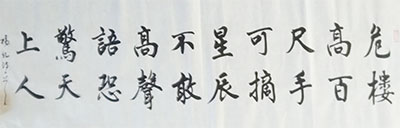 危楼
高百
尺手
可摘
星辰
不敢
高聲
語恐
驚天
上人